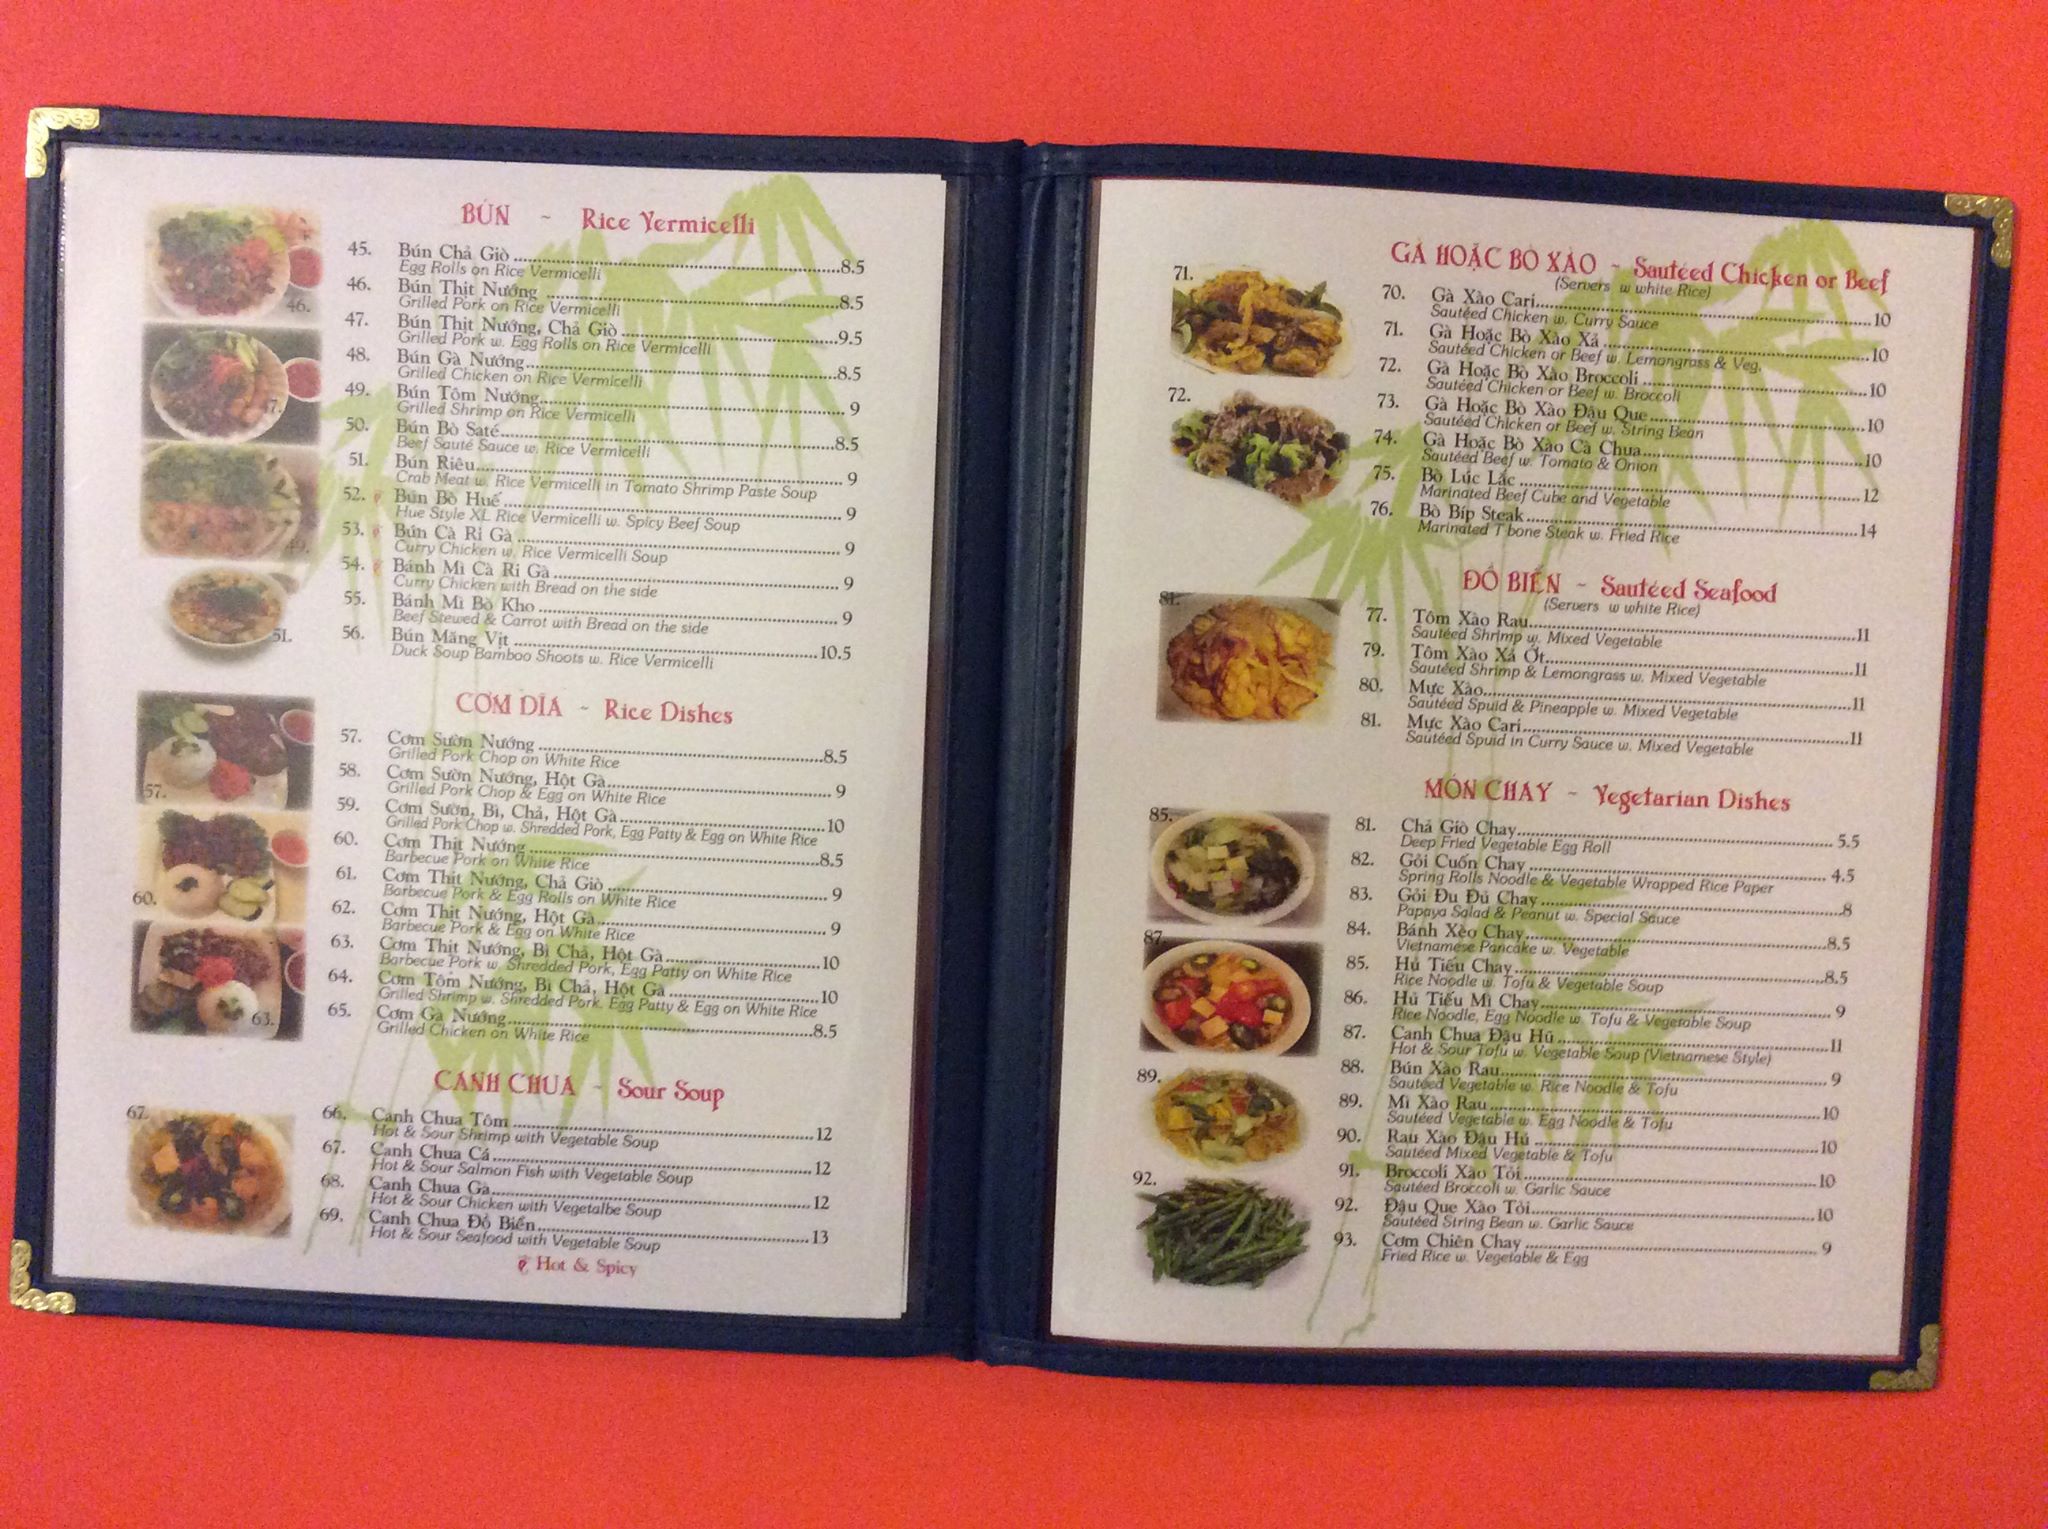 BÚN ~ Rice Vermicelli
45. Bún Chả Giò 8.5
Egg Rolls on Rice Vermicelli
46. Bún Thịt Nướng 8.5
Grilled Pork on Rice Vermicelli
47. Bún Thịt Nướng, Chả Giò 9.5
Grilled Pork w. Egg Rolls on Rice Vermicelli
48. Bún Gà Nướng 8.5
Grilled Chicken on Rice Vermicelli
49. Bún Tôm Nướng 9
Grilled Shrimp on Rice Vermicelli
50. Bún Bò Saté 8.5
Beef Sauté Sauce w. Rice Vermicelli
51. Bún Riêu 9
Crab Meat w. Rice Vermicelli in Tomato Shrimp Paste Soup
52. Bún Bò Huế 9
Hue Style XL Rice Vermicelli w. Spicy Beef Soup
53. Bún Cà Ri Gà 9
Curry Chicken w. Rice Vermicelli Soup
54. Bánh Mì Cà Ri Gà 9
Curry Chicken with Bread on the side
55. Bánh Mì Bò Kho 9
Beef Stewed & Carrot with Bread on the side
56. Bún Măng Vịt 10.5
Duck Soup Bamboo Shoots w. Rice Vermicelli
46.
47.
49.
51.
CƠM DĨA ~ Rice Dishes
57. Cơm Sườn Nướng 8.5
Grilled Pork Chop on White Rice
58. Cơm Sườn Nướng, Hột Gà 9
Grilled Pork Chop & Egg on White Rice
59. Cơm Sườn, Bì, Chả, Hột Gà 10
Grilled Pork Chop w. Shredded Pork, Egg Patty & Egg on White Rice
60. Cơm Thịt Nướng 8.5
Barbecue Pork on White Rice
61. Cơm Thịt Nướng, Chả Giò 9
Barbecue Pork & Egg Rolls on White Rice
62. Cơm Thịt Nướng, Hột Gà 9
Barbecue Pork & Egg on White Rice
63. Cơm Thịt Nướng, Bì Chả, Hột Gà 10
Barbecue Pork w. Shredded Pork, Egg Patty on White Rice
64. Cơm Tôm Nướng, Bì Chả, Hột Gà 10
Grilled Shrimp w. Shredded Pork, Egg Patty & Egg on White Rice
65. Cơm Gà Nướng 8.5
Grilled Chicken on White Rice
57.
60.
63.
CANH CHUA ~ Sour Soup
66. Canh Chua Tôm 12
Hot & Sour Shrimp with Vegetable Soup
67. Canh Chua Cá 12
Hot & Sour Salmon Fish with Vegetable Soup
68. Canh Chua Gà 12
Hot & Sour Chicken with Vegetalbe Soup
69. Canh Chua Đồ Biển 13
Hot & Sour Seafood with Vegetable Soup
67.
Hot & Spicy
GÀ HOẶC BÒ XÀO ~ Sautéed Chicken or Beef
(Servers w white Rice)
70. Gà Xào Cari 10
Sautéed Chicken w. Curry Sauce
71. Gà Hoặc Bò Xào Xả 10
Sautéed Chicken or Beef w. Lemongrass & Veg.
72. Gà Hoặc Bò Xào Broccoli 10
Sautéed Chicken or Beef w. Broccoli
73. Gà Hoặc Bò Xào Đậu Que 10
Sautéed Chicken or Beef w. String Bean
74. Gà Hoặc Bò Xào Cà Chua 10
Sautéed Beef w. Tomato & Onion
75. Bò Lúc Lắc 12
Marinated Beef Cube and Vegetable
76. Bò Bíp Steak 14
Marinated T'bone Steak w. Fried Rice
71.
72.
ĐỒ BIỂN ~ Sautéed Seafood
(Servers w white Rice)
77. Tôm Xào Rau 11
Sautéed Shrimp w. Mixed Vegetable
79. Tôm Xào Xả Ớt 11
Sautéed Shrimp & Lemongrass w. Mixed Vegetable
80. Mực Xào 11
Sautéed Spuid & Pineapple w. Mixed Vegetable
81. Mực Xào Cari 11
Sautéed Spuid in Curry Sauce w. Mixed Vegetable
81.
MÓN CHAY ~ Vegetarian Dishes
81. Chả Giò Chay 5.5
Deep Fried Vegetable Egg Roll
82. Gỏi Cuốn Chay 4.5
Spring Rolls Noodle & Vegetable Wrapped Rice Paper
83. Gỏi Đu Đủ Chay 8
Papaya Salad & Peanut w. Special Sauce
84. Bánh Xèo Chay 8.5
Vietnamese Pancake w. Vegetable
85. Hủ Tiếu Chay 8.5
Rice Noodle w. Tofu & Vegetable Soup
86. Hủ Tiếu Mì Chay 9
Rice Noodle, Egg Noodle w. Tofu & Vegetable Soup
87. Canh Chua Đậu Hũ 11
Hot & Sour Tofu w. Vegetable Soup (Vietnamese Style)
88. Bún Xào Rau 9
Sautéed Vegetable w. Rice Noodle & Tofu
89. Mì Xào Rau 10
Sautéed Vegetable w. Egg Noodle & Tofu
90. Rau Xào Đậu Hủ 10
Sautéed Mixed Vegetable & Tofu
91. Broccoli Xào Tỏi 10
Sautéed Broccoli w. Garlic Sauce
92. Đậu Que Xào Tỏi 10
Sautéed String Bean w. Garlic Sauce
93. Cơm Chiên Chay 9
Fried Rice w. Vegetable & Egg
85.
87.
89.
92.